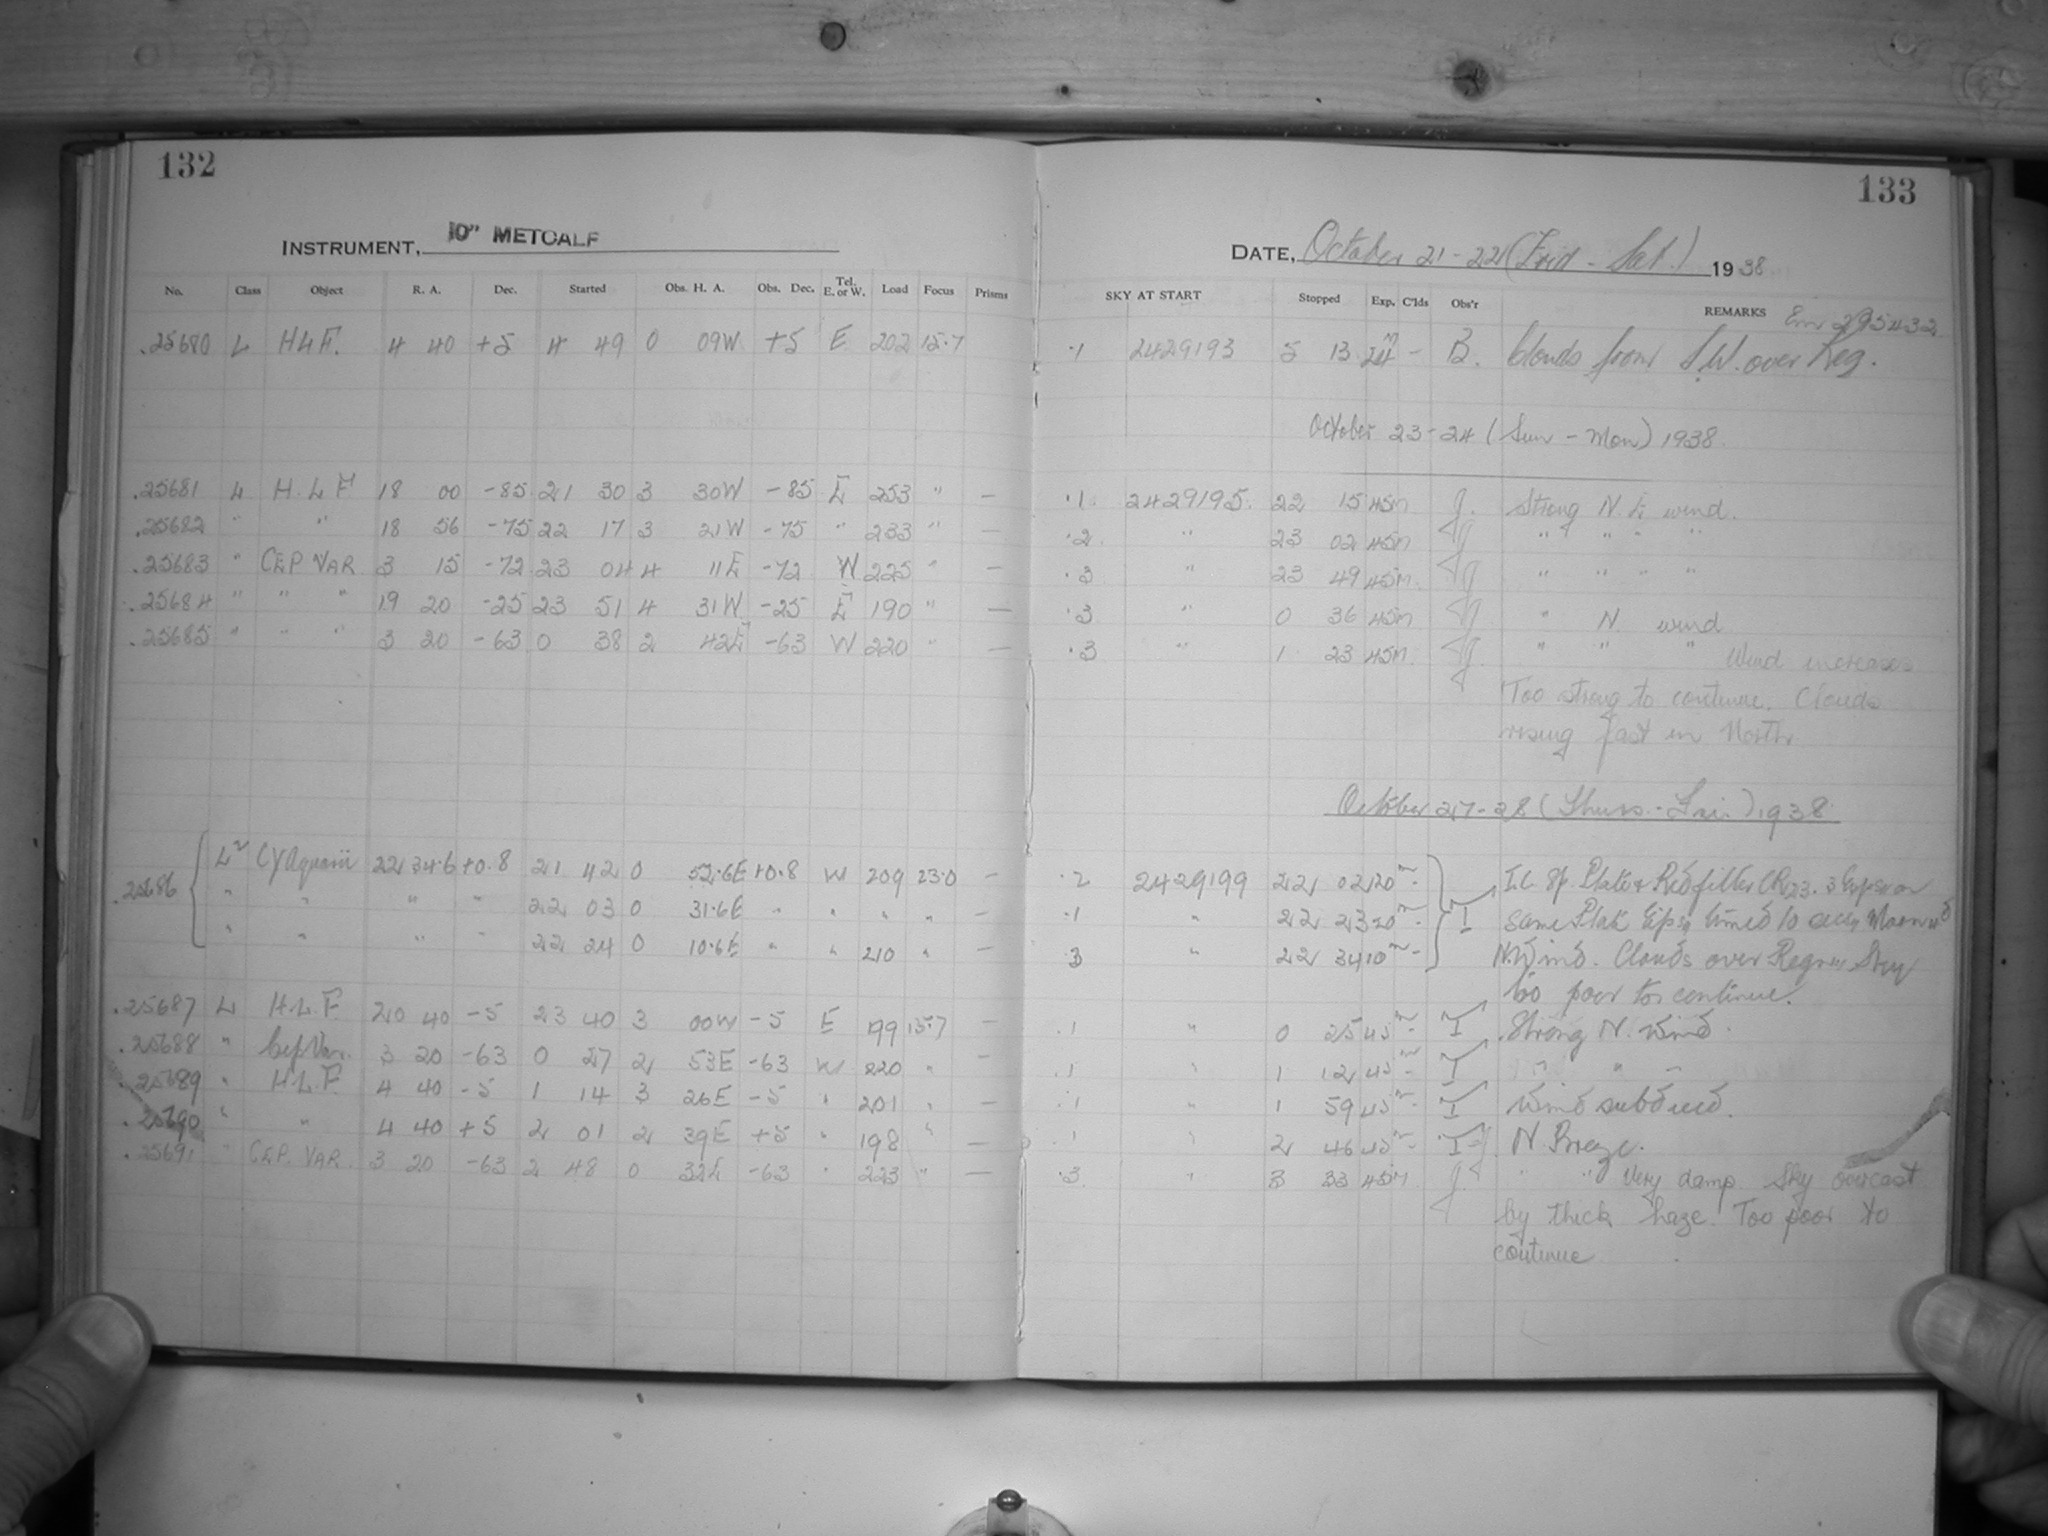 132
133
INSTRUMENT, 10" METCALF
DATE, October 21-22 (Frid - Sat.) 1938
No. Class Object R. A. Dec. Started Obs. H. A. Obs. Dec. Tel. E. or W. Load Focus Prisms SKY AT START Stopped Exp. C'lds Obs'r REMARKS
.25680 L H L F. 4 40 +5 4 49 0 09W +5 E 202 15.7 .1 2429193 5 13 24m - B. Clouds from S.W. over Reg.
October 23-24 (Sun - Mon) 1938.
.25681 L H. L F 18 00 -85 21 30 3 30W -85 E 253 " - .1 2429195. 22 15 45m J. Strong N. E wind.
.25682 " " 18 56 -75 22 17 3 21W -75 " 233 " - .2 " 23 02 45m J " " " "
.25683 " CEP VAR 3 15 -72 23 04 4 11E -72 W 225 " - .3 " 23 49 45m. J " " " "
.25684 " " " 19 20 -25 23 51 4 31W -25 E 190 " - .3 " 0 36 45m J " N. wind
.25685 " " " 3 20 -63 0 38 2 42E -63 W 220 " - .3 " 1 23 45m. J " " " Wind increases
Too strong to continue. Clouds
rising fast in North.
October 27-28 (Thurs. - Fri.) 1938
.25686 L2 CY Aquarii 22 34.6 +0.8 21 42 0 52.6E +0.8 W 209 23.0 - .2 2429199 22 02 20m - Plate & Red filter 3 Exps on
" " " " 22 03 0 31.6E " " " " - .1 " 22 23 20m - I same Plate timed to
" " " " 22 24 0 10.6E " " 210 " - 3 " 22 34 10m - N. Wind. Clouds over Region Sky
too poor to continue.
.25687 L H. L. F 20 40 -5 23 40 3 00W -5 E 199 15.7 - .1 " 0 25 45m - I Strong N. Wind.
.25688 " Cep Var. 3 20 -63 0 27 2 53E -63 W 220 " - .1 " 1 12 45m - I " " "
.25689 " H. L. F. 4 40 -5 1 14 3 26E -5 " 201 " - .1 " 1 59 45m - I Wind subdued.
.25690 " " 4 40 +5 2 01 2 39E +5 " 198 " - .1 " 2 46 45m - I-J N. Breeze.
.25691 " CEP. VAR. 3 20 -63 2 48 0 32E -63 " 223 " - .3 " 3 33 45m J. " " Very damp. Sky overcast
by thick haze. Too poor to
continue